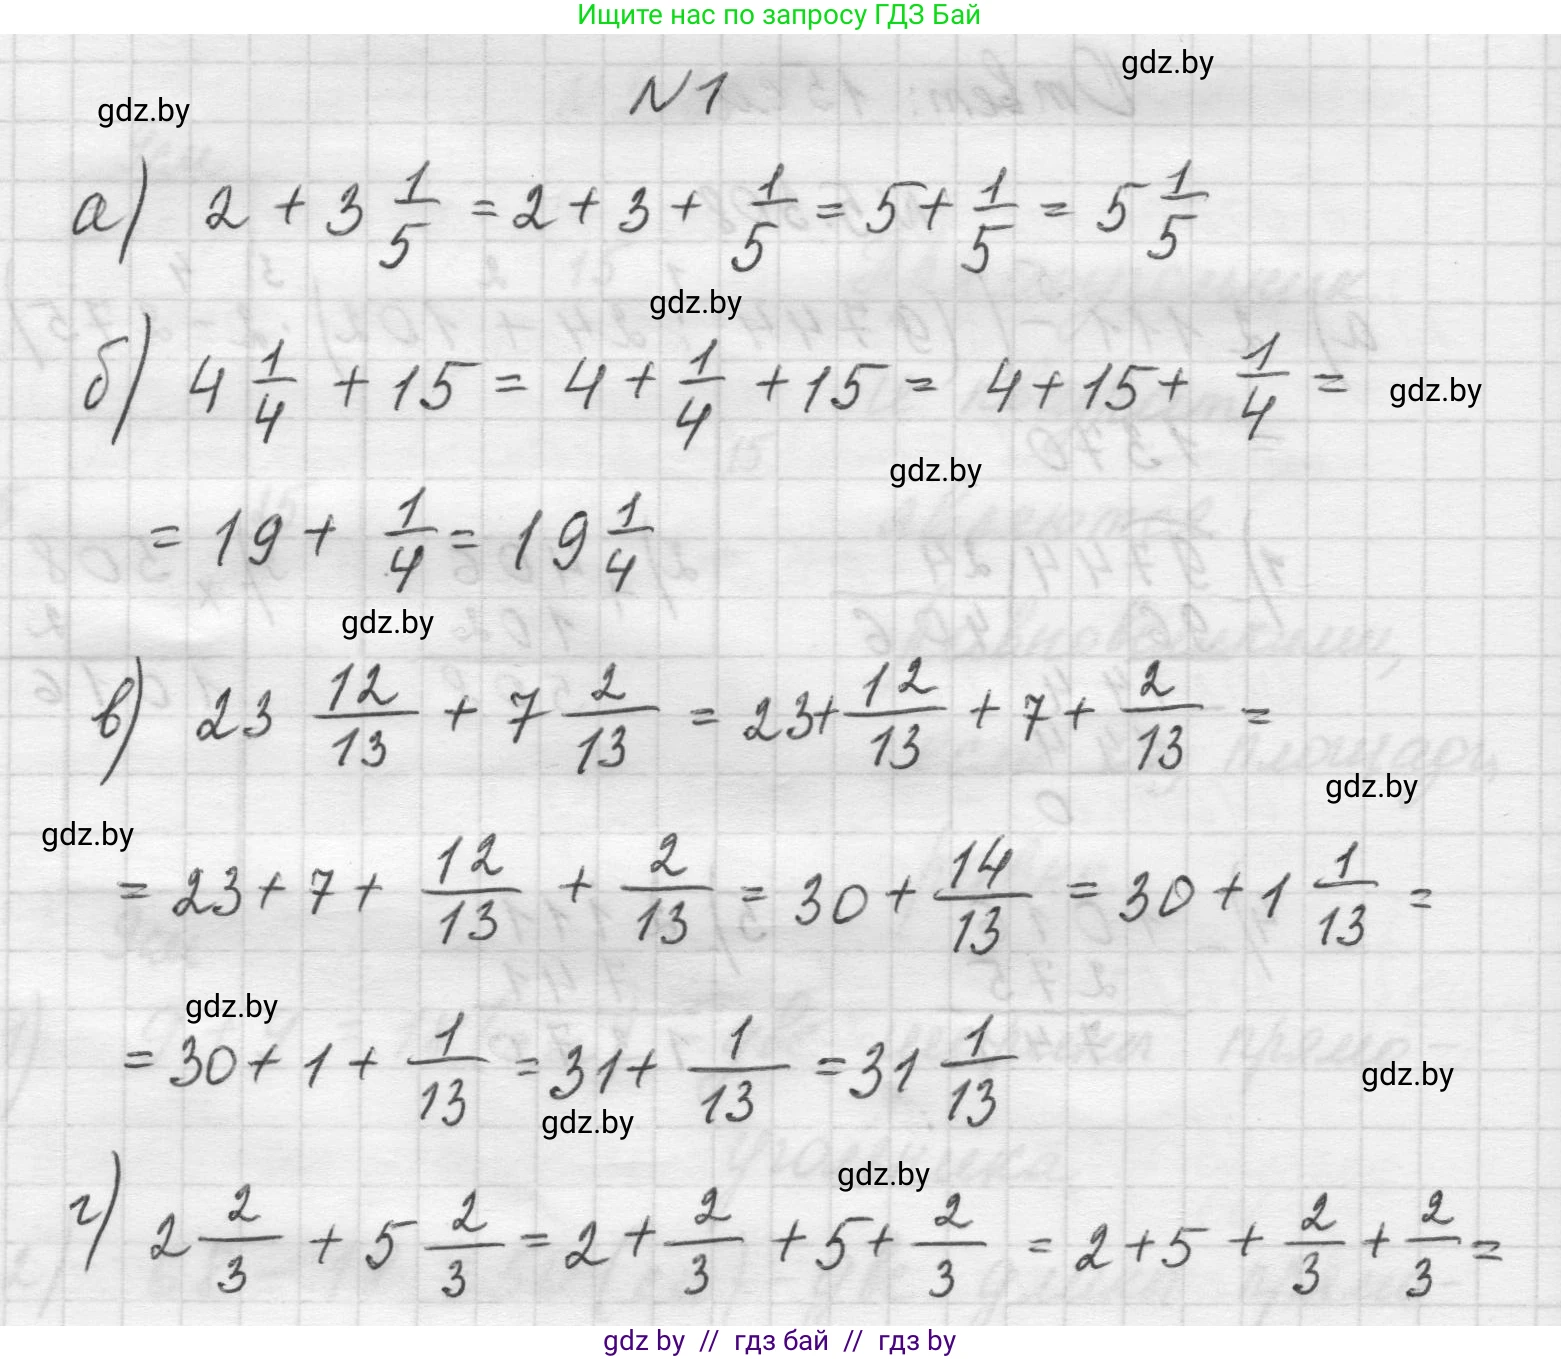 Ищите нас по запросу ГДЗ Бай
gdz.by
N1
gdz.by
а) 2 + 3 1/5 = 2 + 3 + 1/5 = 5 + 1/5 = 5 1/5
gdz.by
б) 4 1/4 + 15 = 4 + 1/4 + 15 = 4 + 15 + 1/4 =
gdz.by
gdz.by
= 19 + 1/4 = 19 1/4
gdz.by
в) 23 12/13 + 7 2/13 = 23 + 12/13 + 7 + 2/13 =
gdz.by
gdz.by
= 23 + 7 + 12/13 + 2/13 = 30 + 14/13 = 30 + 1 1/13 =
gdz.by
= 30 + 1 + 1/13 = 31 + 1/13 = 31 1/13
gdz.by
gdz.by
gdz.by
г) 2 2/3 + 5 2/3 = 2 + 2/3 + 5 + 2/3 = 2 + 5 + 2/3 + 2/3 =
gdz by // гдз бай // гдз by